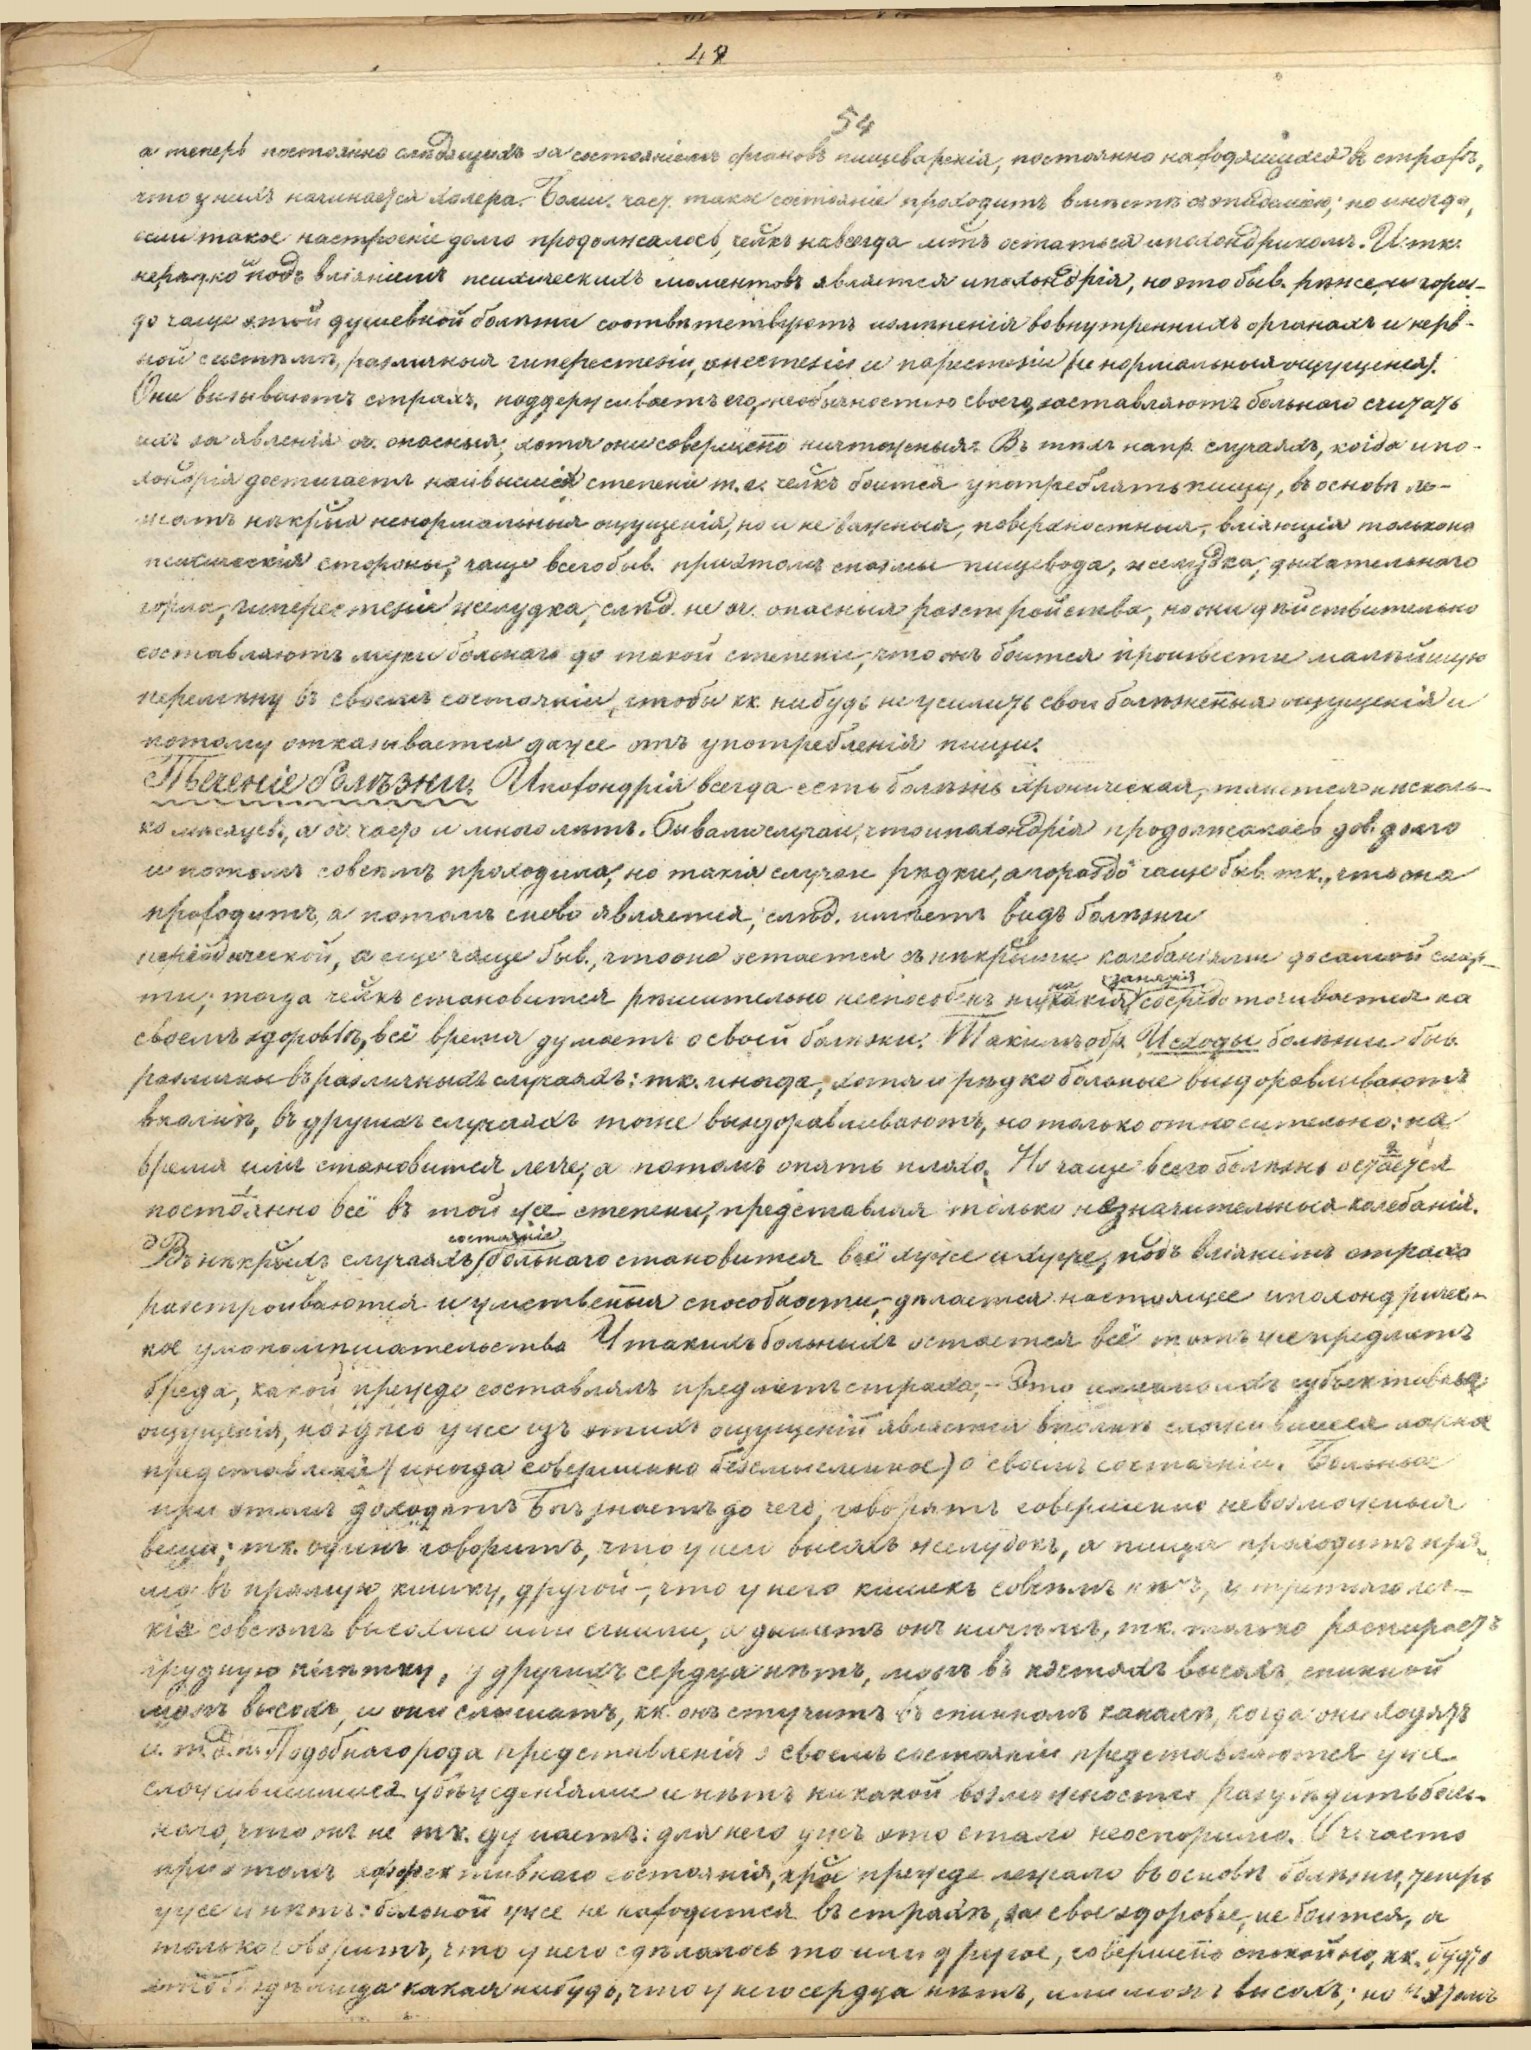 48
54
а теперь постоянно слѣдящихъ за состояніемъ органовъ пищеваренія, постоянно находящихся въ страхѣ,
что у нихъ начинается холера. Больш. част. такое состояніе проходитъ вмѣстѣ съ эпидеміею; но иногда,
если такое настроеніе долго продолжалось, челкъ навсегда мжтъ остаться ипохондрикомъ. И тк.
нерѣдко и подъ вліяніемъ психическихъ моментовъ является ипохондрія, но это быв. рѣже, и гораз-
до чаще этой душевной болѣзни соотвѣтствуютъ измѣненія во внутреннихъ органахъ и нерв-
ной системѣ, различныя гиперестезіи, анестезіи и парестезіи (не нормальныя ощущенія).
Они вызываютъ страхъ, поддерживаетъ его, необычностью своею заставляютъ больнаго считать
ихъ за явленія оч. опасныя, хотя они совершенно ничтожныя. Въ тѣхъ напр. случаяхъ, когда ипо-
хондрія достигаетъ наивысшей степени т.е. челкъ боится употреблять пищу, въ основѣ ле-
жатъ нѣкрыя ненормальныя ощущенія, но и не важныя, поверхностныя, вліяющія только на
психическія стороны; чаще всего быв. при этомъ спазмы пищевода, желудка, дыхательнаго
горла, гиперестезіи желудка, слѣд. не оч. опасныя разстройства, но они дѣйствительно
составляютъ муки больнаго до такой степени, что онъ боится произвести малѣйшую
перемѣну въ своемъ состояніи, чтобы кк. нибудь не усилить свои болѣзненныя ощущенія и
потому отказывается даже отъ употребленія пищи.
Теченіе болѣзни. Ипохондрія всегда есть болѣзнь хроническая, тянется нѣсколь-
ко мѣсяцевъ, а оч. часто и много лѣтъ. Бывали случаи, что ипохондрія продолжалась дов. долго
и потомъ совсѣмъ проходила, но такія случаи рѣдки, а гораздо чаще быв. тк., что она
проходитъ, а потомъ снова является, слѣд. имѣетъ видъ болѣзни
періодической, а еще чаще быв., что она остается съ нѣкрыми колебаніями до самой смер-
ти; тогда челкъ становится рѣшительно неспособенъ ни на какія занятія сосредоточивается на
своемъ здоровьѣ, всё время думаетъ о своей болѣзни. Такимъ обр. Исходы болѣзни быв.
различны въ различныхъ случаяхъ: тк. иногда, хотя и рѣдко больные выздоравливаютъ
вполнѣ, въ другихъ случаяхъ тоже выздоравливаютъ, но только относительно: на
время имъ становится легче, а потомъ опять плохо. Но чаще всего болѣзнь остается
постоянно всё въ той же степени, представляя только незначительныя колебанія.
Въ нѣкрыхъ случаяхъ состояніе больнаго становится всё хуже и хуже, подъ вліяніемъ страха
разстроиваются и умственныя способности, дѣлается настоящее ипохондричес-
кое умопомѣшательство У такихъ больныхъ остается всё тотъ же предметъ
бреда, какой прежде составлялъ предметъ страха, – Это субъективныя
ощущенія, но уже изъ этихъ ощущеній является вполнѣ сложившееся масса
представленій (иногда совершенно безсмысленное) о своемъ состояніи. Больные
при этомъ доходятъ Богъ знаетъ до чего, говорятъ совершенно невозможныя
вещи; тк. одинъ говоритъ, что у него высохъ желудокъ, а пища проходитъ пря-
мо въ прямую кишку, другой –, что у него кишекъ совсѣмъ нѣтъ, у третьяго лег-
кія совсѣмъ высохли или сгнили, а дышетъ онъ ничѣмъ, тк. только распираетъ
грудную клѣтку, у другихъ сердца нѣтъ, мозгъ въ костяхъ высохъ, спинной
мозгъ высохъ, и они слышатъ, кк. онъ стучитъ въ спинномъ каналѣ, когда они ходятъ
и т.д. Подобнаго рода представленія о своемъ состояніи представляются уже
сложившимися убѣжденіями и нѣтъ никакой возможности разубѣдить боль-
наго, что онъ не тк. думаетъ: для него ужъ это стало неоспоримо. Оч. часто
при этомъ аффективнаго состоянія, крое прежде лежало въ основѣ болѣзни, теперь
уже и нѣтъ: больной уже не находится въ страхѣ, за свое здоровье, не боится, а
только говоритъ, что у него сдѣлалось то или другое, совершенно спокойно, кк. будто
бездѣлица какая нибудь, что у него сердца нѣтъ, или мозгъ высохъ; но